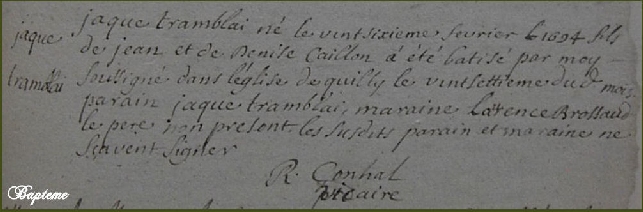 jaque tramblai né le vintsixieme fevrier 1694 fils
jaque
de jean et de Denise Caillon á été batisé par moy
soussigné dans leglise de quilly le vintsettieme du d mois
tramblai
parain jaque tramblai, maraine Larence Brossaud
le pere non present les susdits parain et maraine ne
scavent signer
R. Conhal
vicaire
Bapteme